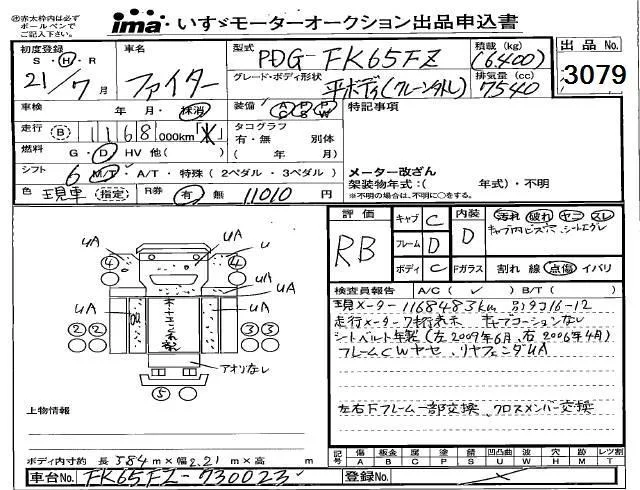 ㊟赤太枠内は必ず
ボールペンで
ご記入下さい。
ima いすゞモーターオークション出品申込書
初度登録 S・H・R 21/7 月
車名 ファイター
型式 PDG-FK65FZ
積載 (kg) (6400)
出品 No. 3079
グレード・ボディ形状 平ボディ(クレーン外し)
排気量 (cc) 7540
車検 年 月・抹消
装備 AC PS PW
特記事項
走行 B 1168 000km
タコグラフ 有・無 別体
( 年 月)
燃料 G・D HV 他( )
シフト 6 M/T・A/T・特殊(2ペダル・3ペダル)
メーター改ざん
架装物年式:( 年式)・不明
※不明の場合は、不明に○をする。
色 現車 (指定) R券 有 無 11010 円
評価 RB
キャブ C
フレーム D
ボディ C
内装 D
汚れ 破れ ヤニ スレ
キャブ内ビス穴、シートエグレ
Fガラス 割れ 線 点傷 イバリ
検査員報告 A/C ( ✓ ) B/T ( )
現メーター 1168483km 別タコ16-12
走行メーター7桁表示 キャブコーションなし
シートベルト年製(左2009年6月、右2006年4月)
フレームCWヤセ、リヤフェンダUA
左右下フレーム一部交換、クロスメンバー交換
UA UA U
UA UA
UA UA
4 4
2 2 3 3
5
アオリなし
上物情報
ボディ内寸約 長 584 m×幅 2.21 m×高 m
記号 傷 A 板金 B 腐 C 塗 P 錆 S 凹凸曲 U ワ W 穴 H 跡 M レツ割 T
車台No. FK65FZ-730023
登録No.